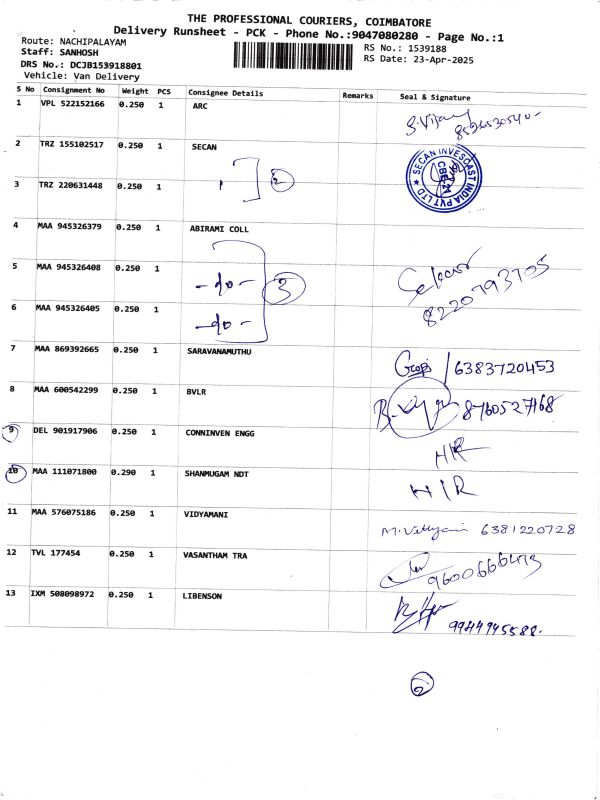 THE PROFESSIONAL COURIERS, COIMBATORE
Delivery Runsheet - PCK - Phone No.:9047080280 - Page No.:1
Route: NACHIPALAYAM
Staff: SANHOSH
RS No.: 1539188
DRS No.: DCJB153918801
RS Date: 23-Apr-2025
Vehicle: Van Delivery
S No Consignment No Weight PCS Consignee Details Remarks Seal & Signature
1 VPL 522152166 0.250 1 ARC
2 TRZ 155102517 0.250 1 SECAN
SECAN INVESCAST INDIA PVT LTD
3 TRZ 220631448 0.250 1 2
4 MAA 945326379 0.250 1 ABIRAMI COLL
5 MAA 945326408 0.250 1 -do- 3
8220793705
6 MAA 945326405 0.250 1 -do-
7 MAA 869392665 0.250 1 SARAVANAMUTHU Gopi 6383720453
8 MAA 600542299 0.250 1 BVLR 8760527168
9 DEL 901917906 0.250 1 CONNINVEN ENGG
10 MAA 111071800 0.290 1 SHANMUGAM NDT
11 MAA 576075186 0.250 1 VIDYAMANI 6381220728
12 TVL 177454 0.250 1 VASANTHAM TRA
13 IXM 508098972 0.250 1 LIBENSON
9944945588.